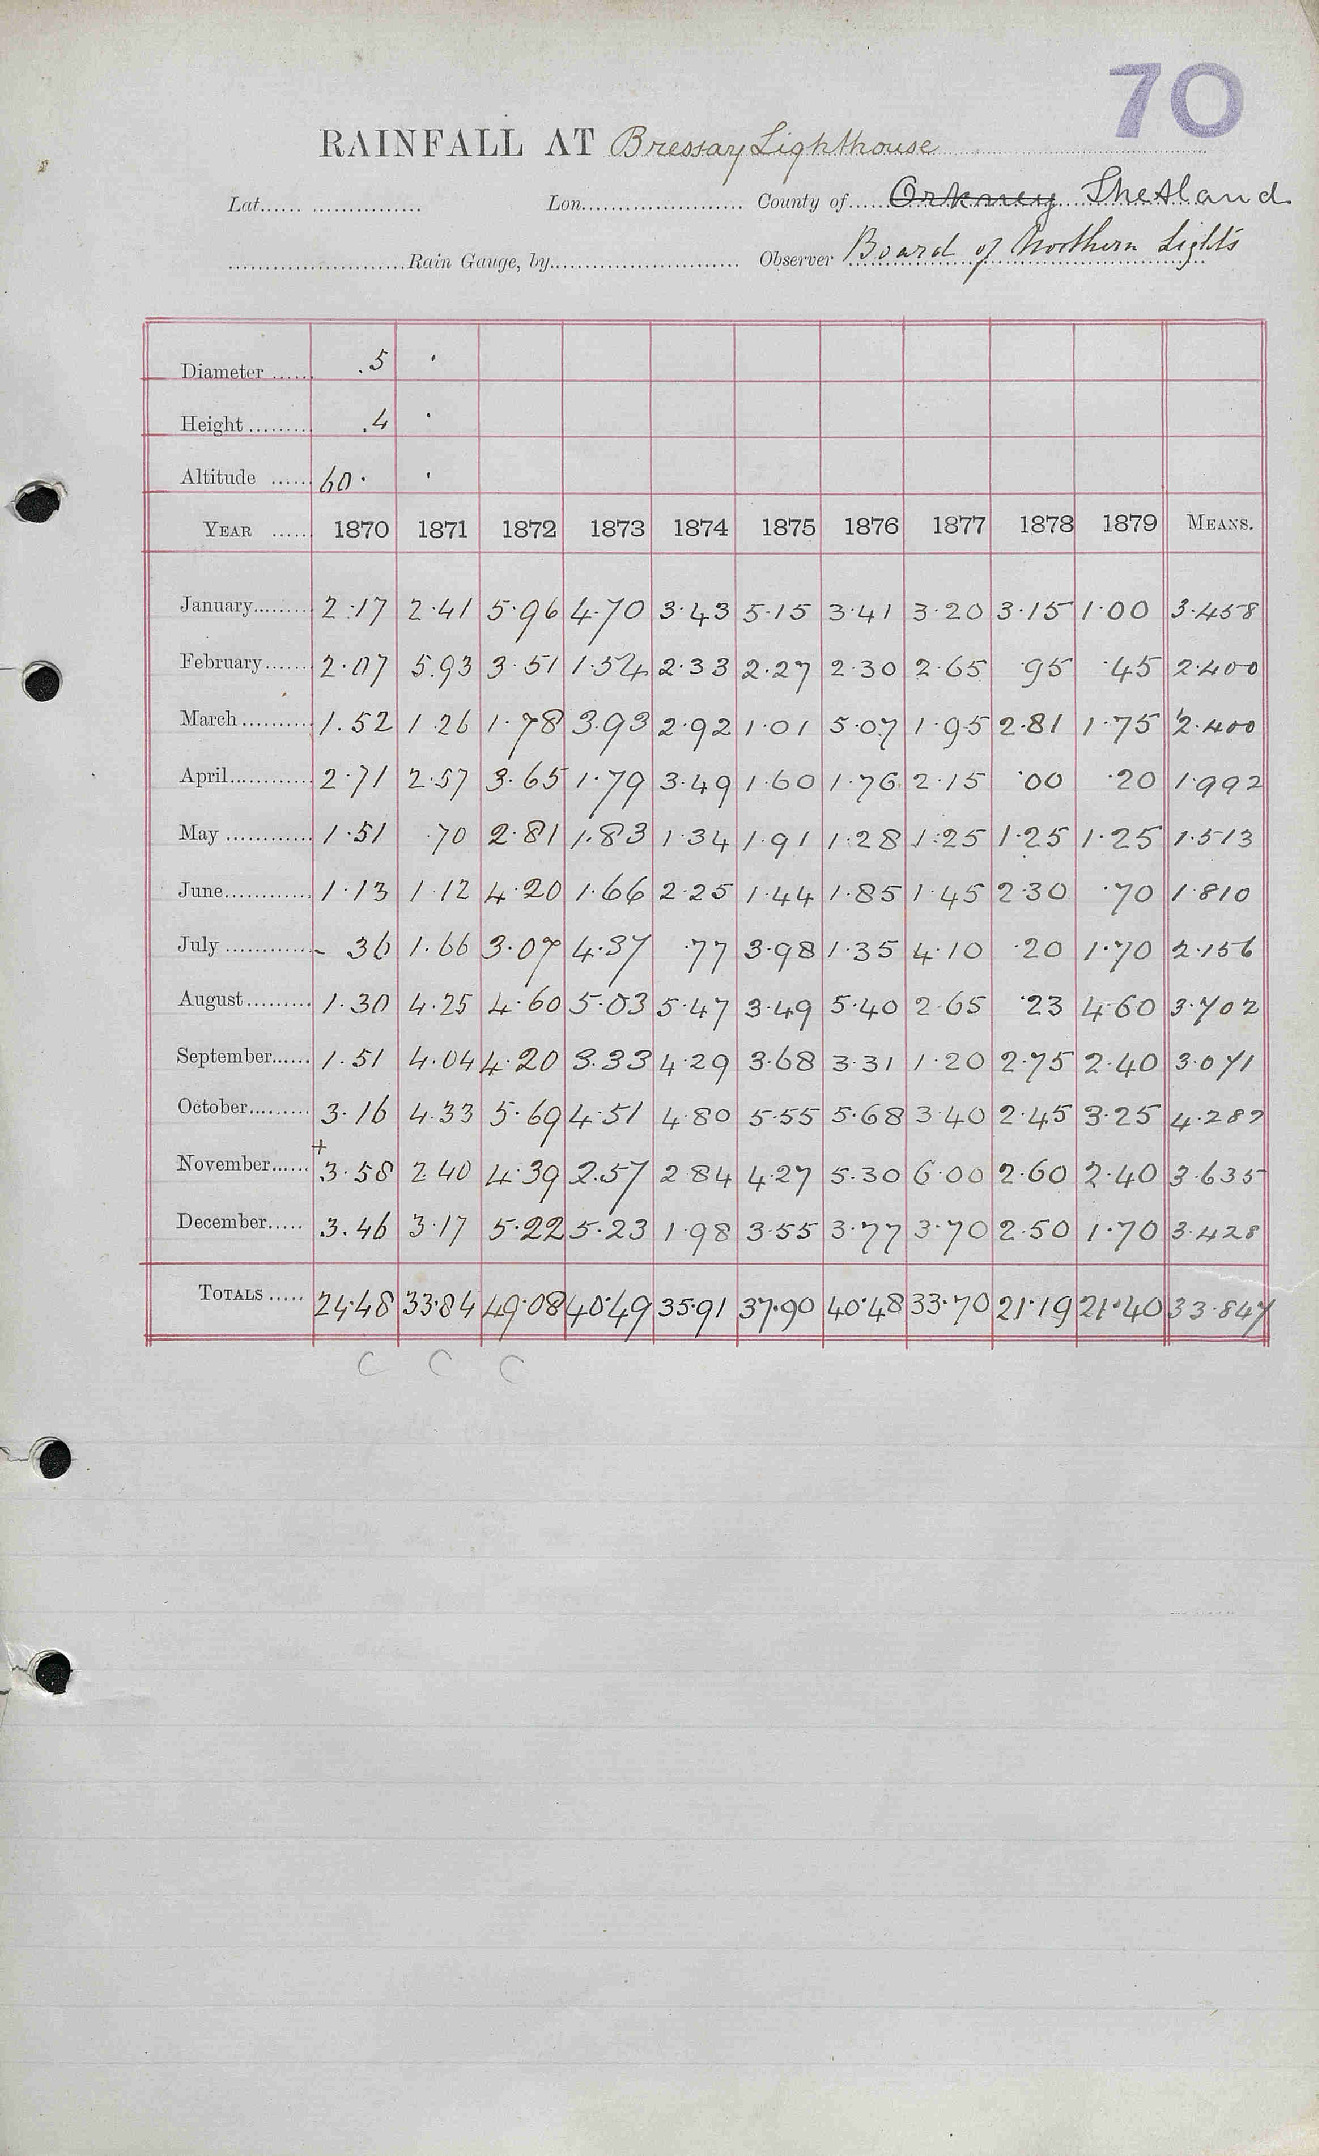 70
RAINFALL AT Bressay Lighthouse
Lat. Lon. County of Orkney Shetland
Rain Gauge, by Observer Board of Northern Lights
Diameter .5 ·
Height .4 ·
Altitude 60· ·
YEAR 1870 1871 1872 1873 1874 1875 1876 1877 1878 1879 MEANS.
January 2·17 2·41 5·96 4·70 3·43 5·15 3·41 3·20 3·15 1·00 3·458
February 2·07 5.93 3·51 1·54 2·33 2·27 2·30 2·65 ·95 ·45 2·400
March 1.52 1·26 1·78 3.93 2·92 1·01 5·07 1·95 2·81 1·75 2·400
April 2·71 2·57 3·65 1·79 3·49 1·60 1·76 2·15 ·00 ·20 1·992
May 1·51 ·70 2·81 1·83 1·34 1·91 1·28 1·25 1·25 1·25 1·513
June 1·13 1·12 4·20 1·66 2·25 1·44 1·85 1·45 2·30 ·70 1·810
July - 36 1·66 3·07 4·37 ·77 3·98 1·35 4·10 ·20 1·70 2·156
August 1·30 4·25 4·60 5·03 5·47 3·49 5·40 2·65 ·23 4·60 3·702
September 1·51 4·04 4·20 3·33 4·29 3·68 3·31 1·20 2·75 2·40 3·071
October 3·16 4·33 5·69 4·51 4·80 5·55 5·68 3·40 2·45 3·25 4·282
November + 3·58 2·40 4·39 2·57 2·84 4·27 5·30 6·00 2·60 2·40 3·635
December 3·46 3·17 5·22 5·23 1·98 3·55 3·77 3·70 2·50 1·70 3·428
TOTALS 24·48 33·84 49·08 40·49 35·91 37·90 40·48 33·70 21·19 21·40 33·847
C C C